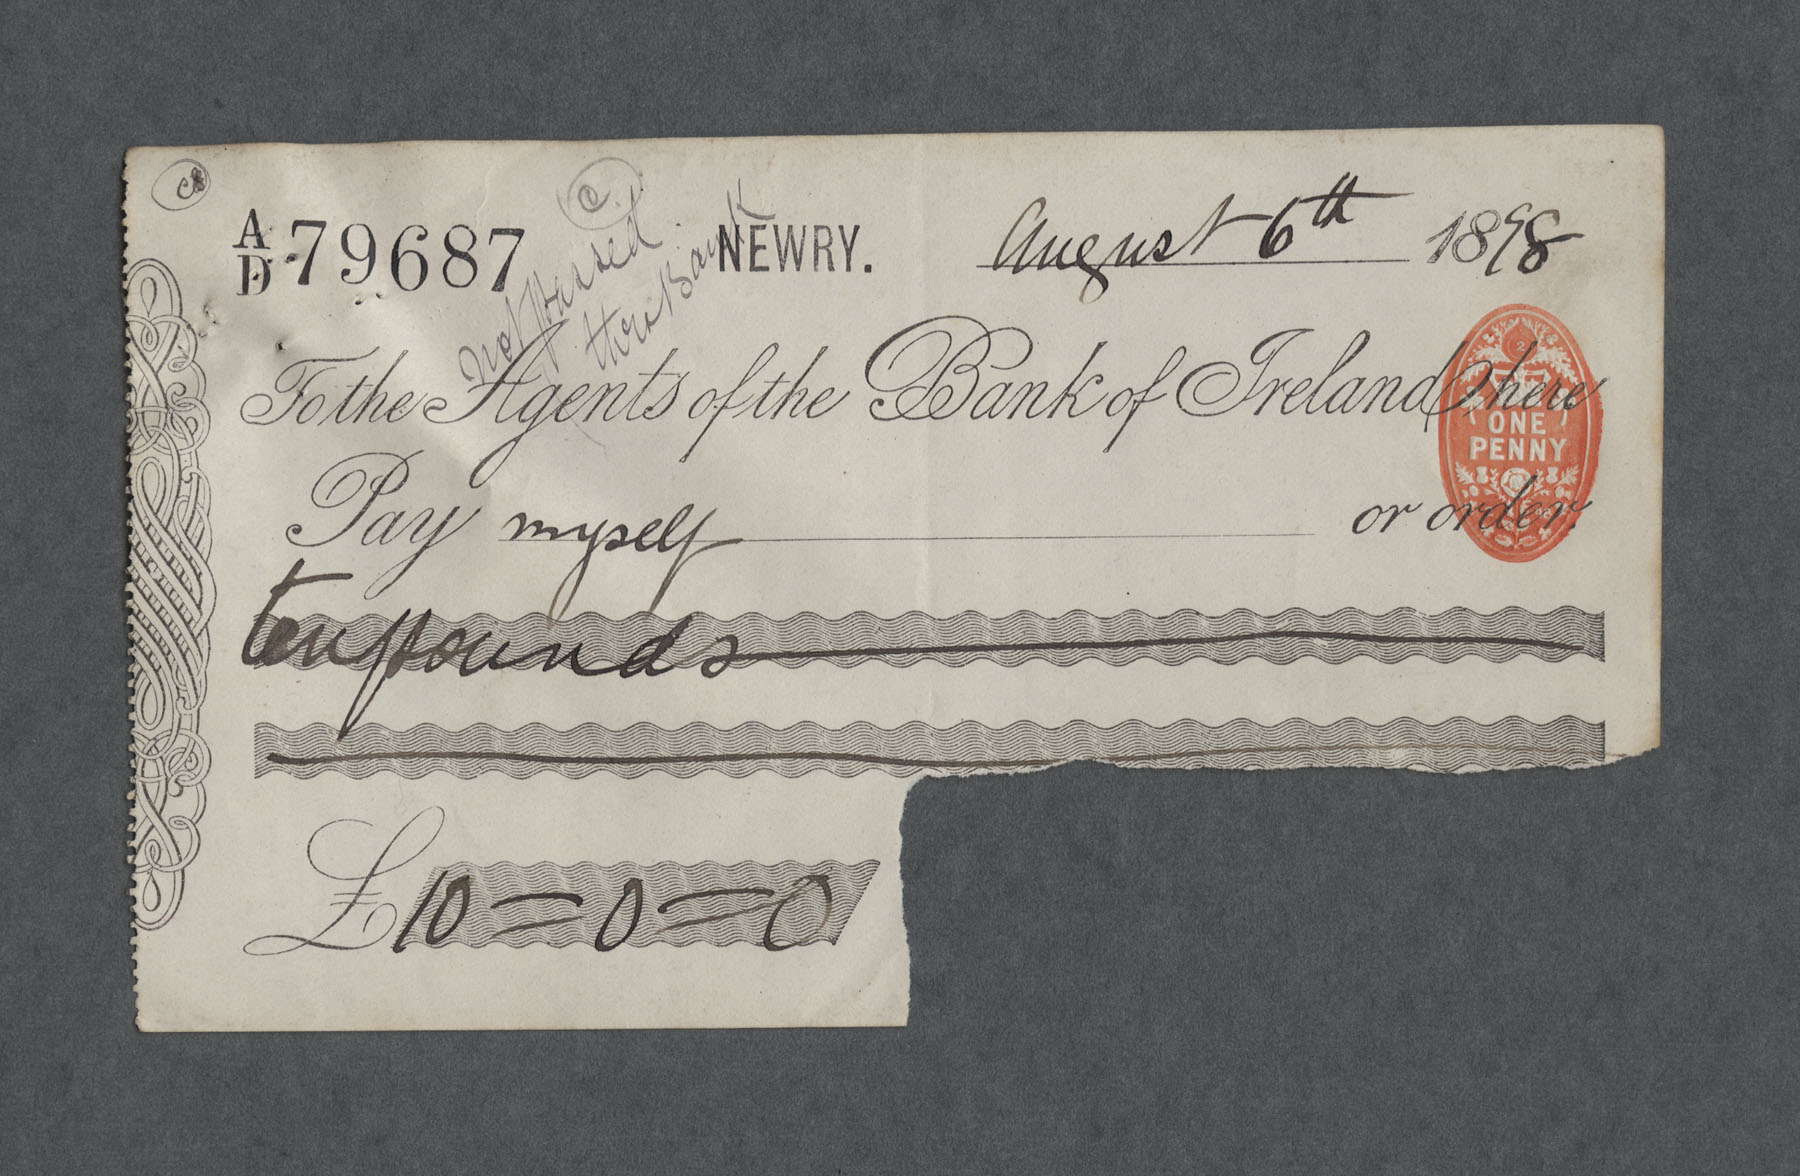 C
C
not passed
thro Bank
A/D 79687 NEWRY. August 6th 1898
To the Agents of the Bank of Ireland, here
ONE
PENNY
Pay myself or order
ten pounds
£10=0=0